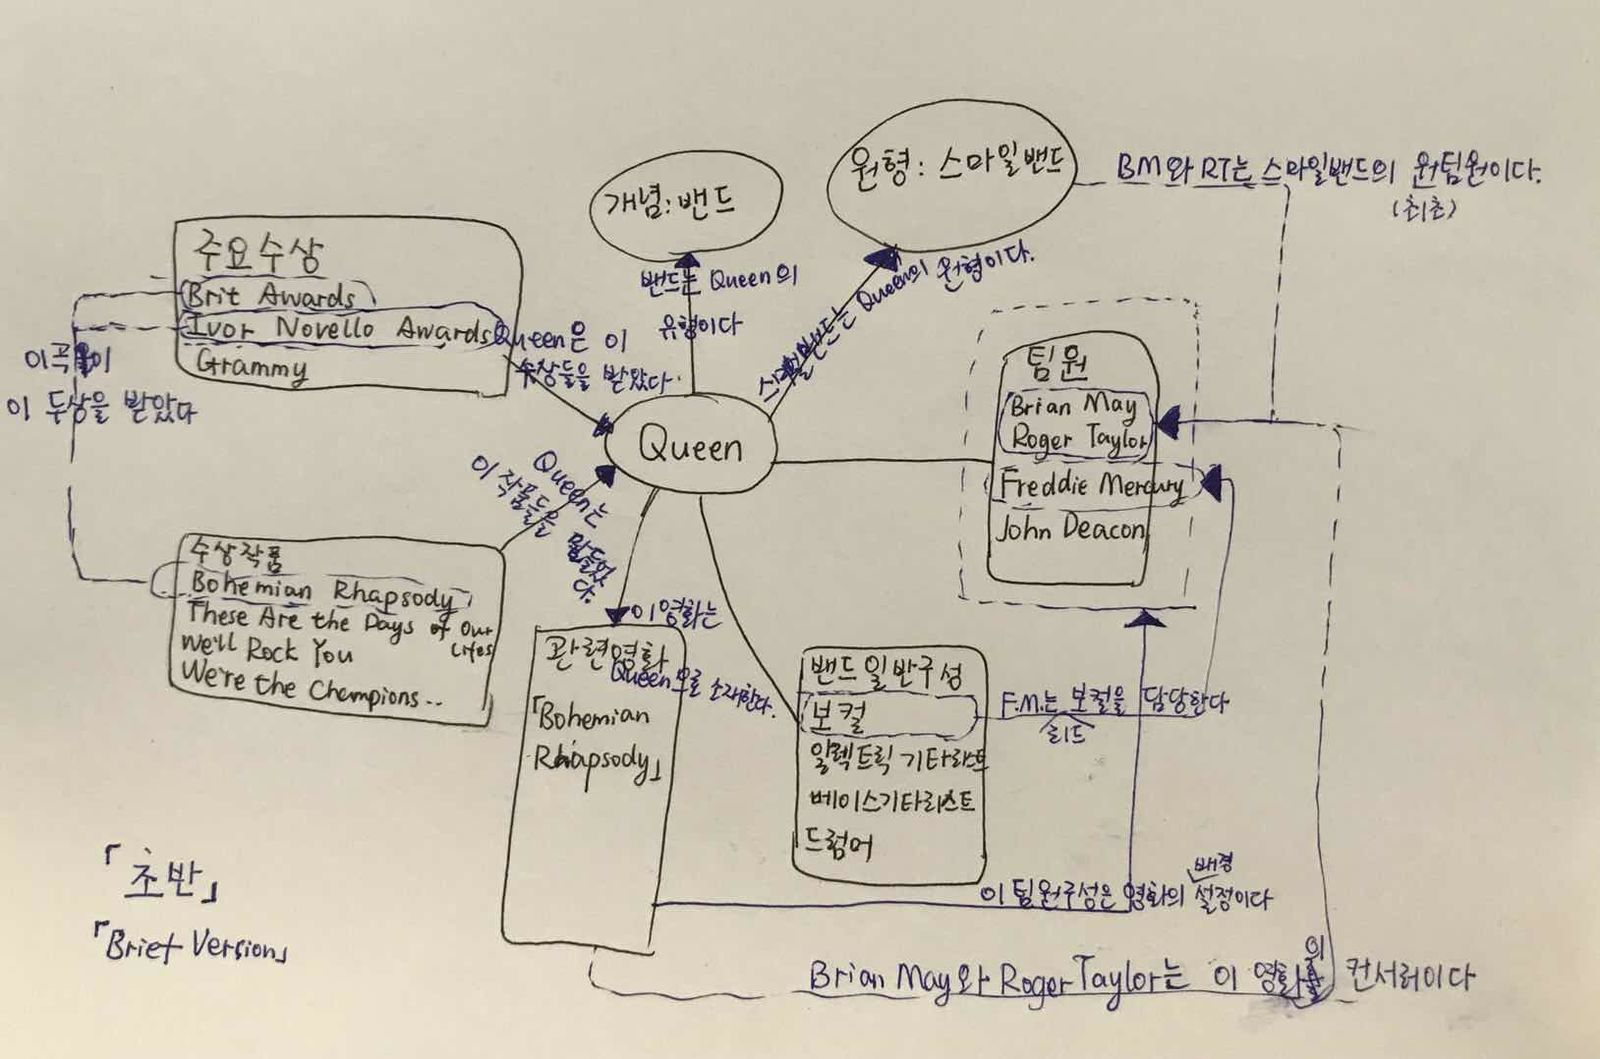 원형: 스마일밴드
BM와 RT는 스마일밴드의 원팀원이다.
(최초)
개념: 밴드
주요수상
Brit Awards
Ivor Novello Awards
Grammy
밴드는 Queen의
유형이다
스마일밴드는 Queen의 원형이다.
Queen은 이
수상들을 받았다.
이곡이
이 두상을 받았다
Queen
팀원
Brian May
Roger Taylor
Freddie Mercury
John Deacon
Queen는
이 작품들을
만들었다.
수상작품
Bohemian Rhapsody
These Are the Days of Our
Lifes
We'll Rock You
We're the Champions..
이영화는
Queen으로 소재한다.
관련영화
「Bohemian
Rhapsody」
밴드일반구성
보컬
일렉트릭 기타리스트
베이스기타리스트
드럼머
F.M.는 보컬을 담당한다
리드
배경
이 팀원구성은 영화의 설정이다
「초반」
「Brief Version」
Brian May와 Roger Taylor는 이 영화의 컨서러이다